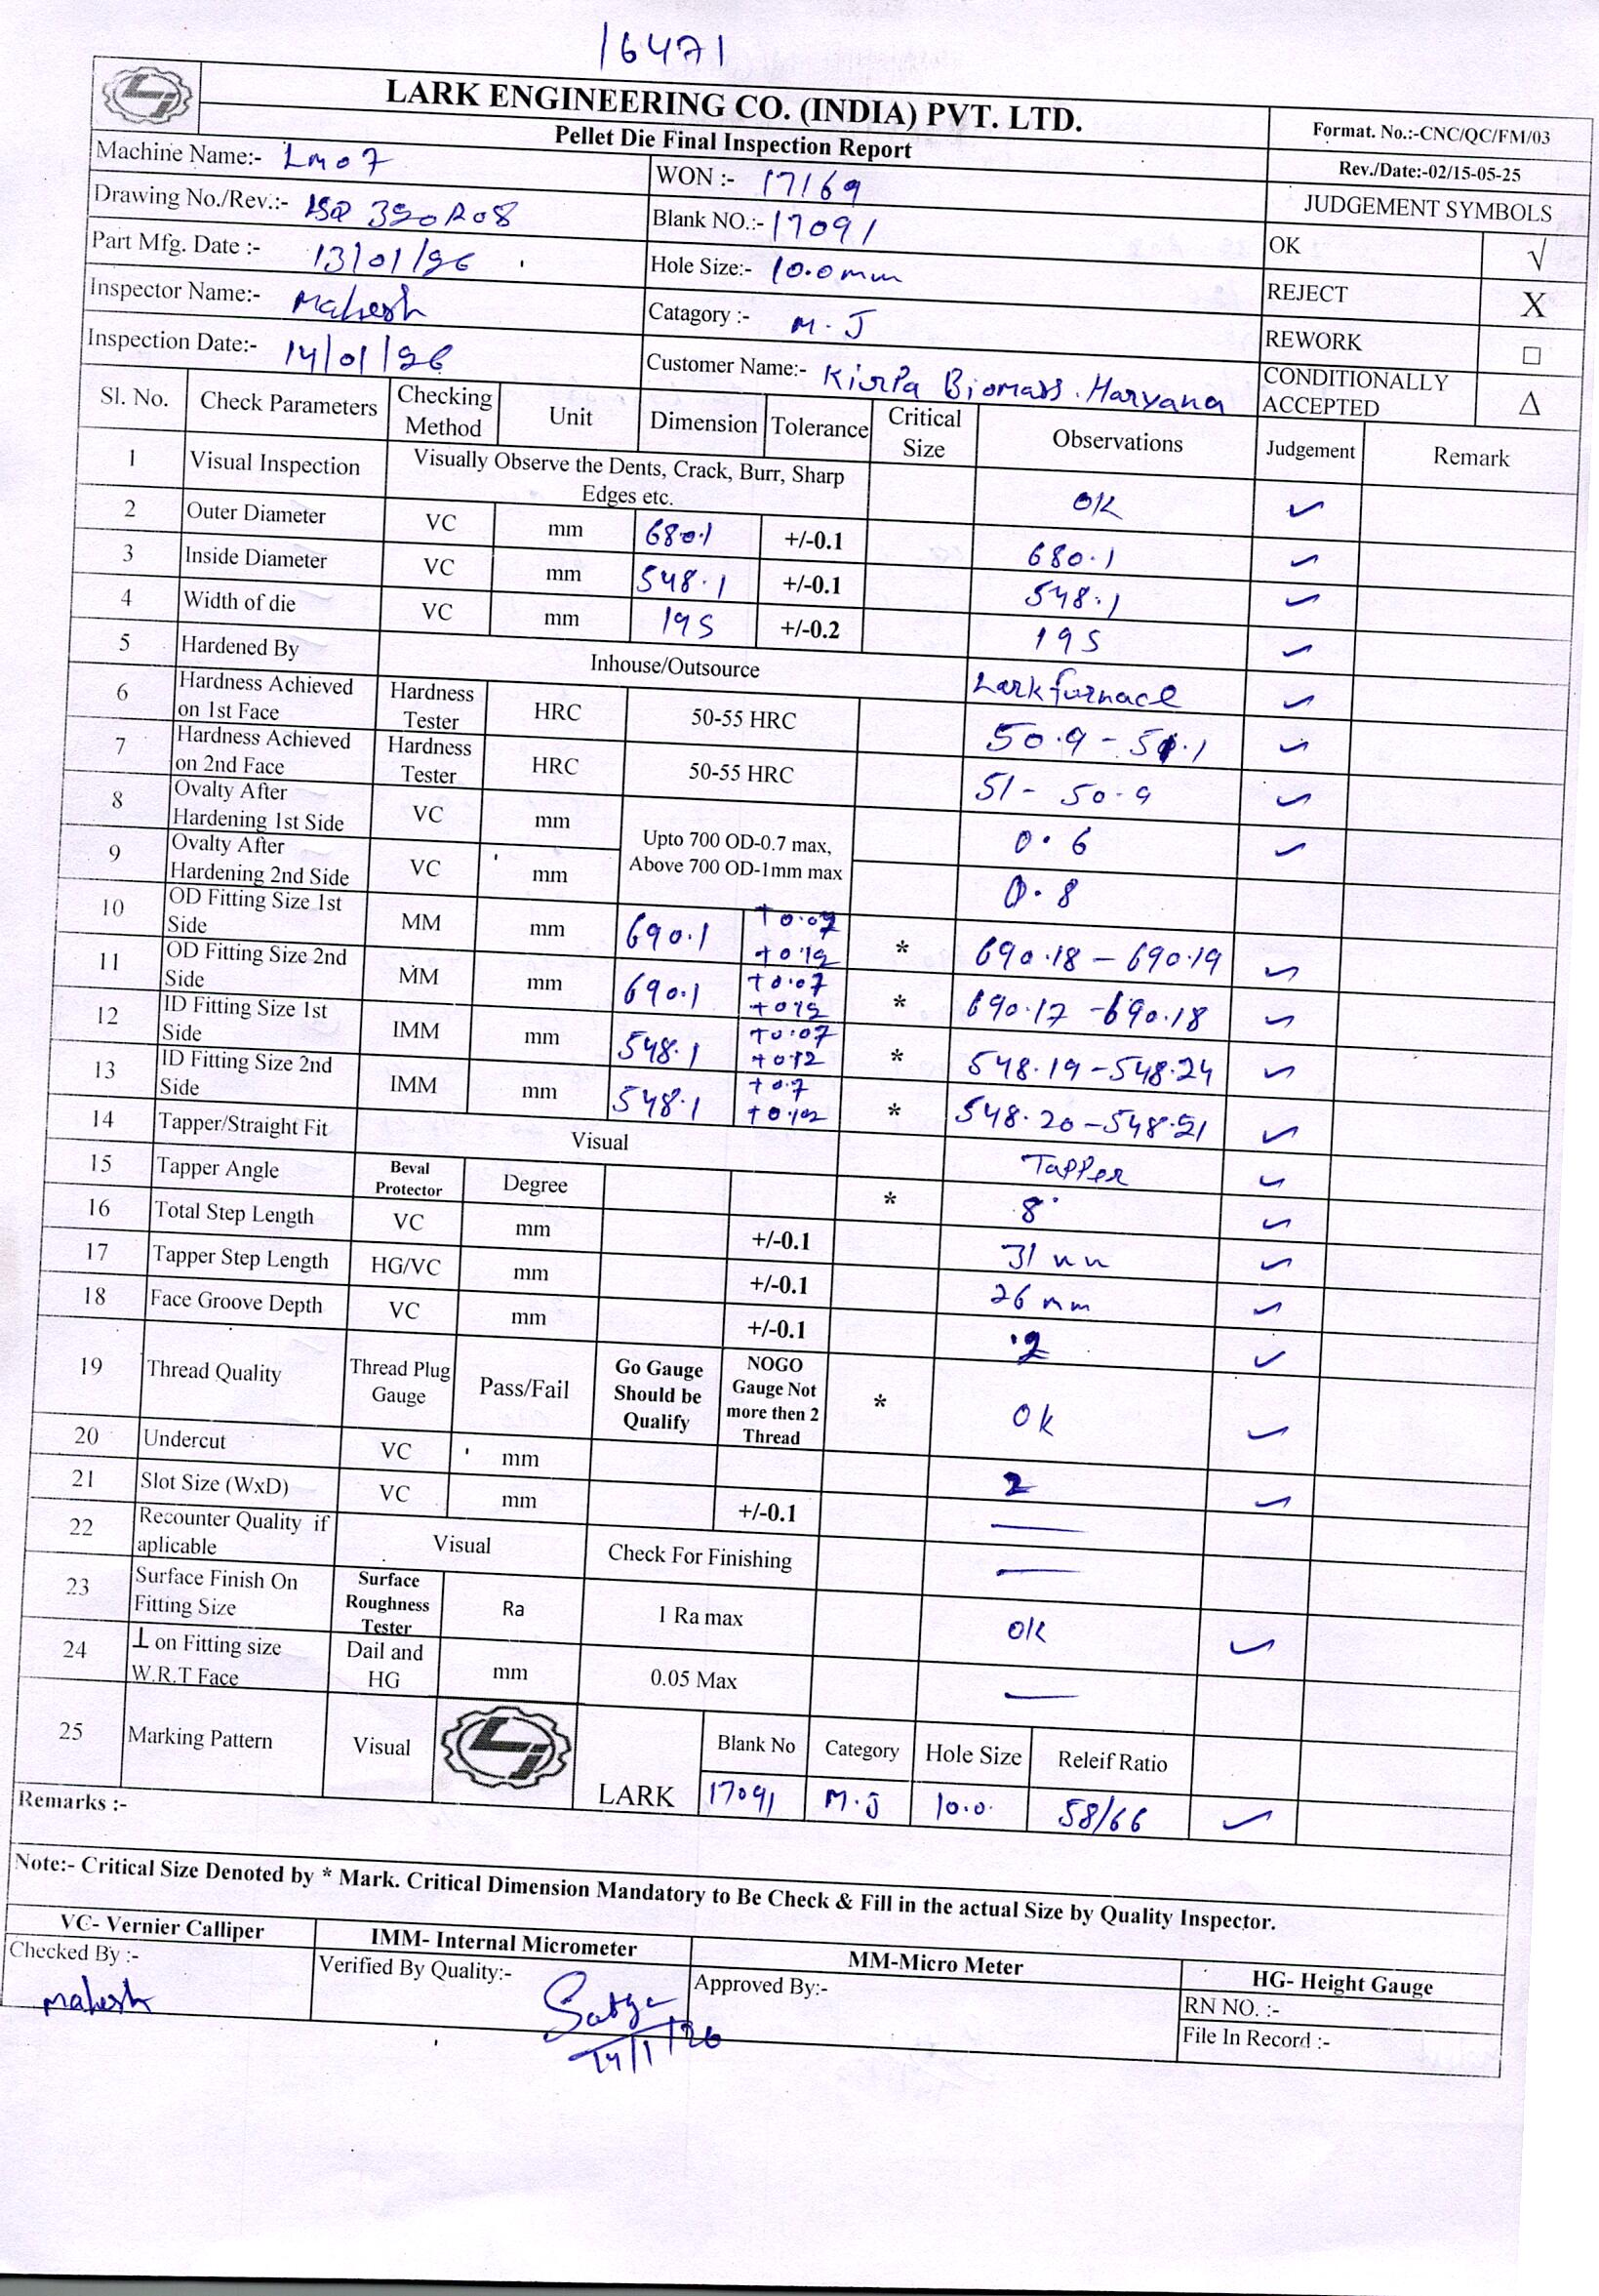 16471
LARK ENGINEERING CO. (INDIA) PVT. LTD.
Format. No.:-CNC/QC/FM/03
Pellet Die Final Inspection Report
Rev./Date:-02/15-05-25
Machine Name:- LM07
WON :- 17169
JUDGEMENT SYMBOLS
Drawing No./Rev.:- 390R08
Blank NO.:- 17091
OK √
Part Mfg. Date :- 13/01/26
Hole Size:- 10.0mm
REJECT X
Inspector Name:- Mahesh
Catagory :- M.J
REWORK □
Inspection Date:- 14/01/26
Customer Name:- Kirpa Biomass. Haryana
CONDITIONALLY ACCEPTED Δ
Sl. No. Check Parameters Checking Method Unit Dimension Tolerance Critical Size Observations Judgement Remark
1 Visual Inspection Visually Observe the Dents, Crack, Burr, Sharp Edges etc. OK ✓
2 Outer Diameter VC mm 680.1 +/-0.1 680.1 ✓
3 Inside Diameter VC mm 548.1 +/-0.1 548.1 ✓
4 Width of die VC mm 195 +/-0.2 195 ✓
5 Hardened By Inhouse/Outsource Lark furnace ✓
6 Hardness Achieved on 1st Face Hardness Tester HRC 50-55 HRC 50.9 - 51.1 ✓
7 Hardness Achieved on 2nd Face Hardness Tester HRC 50-55 HRC 51 - 50.9 ✓
8 Ovalty After Hardening 1st Side VC mm Upto 700 OD-0.7 max, Above 700 OD-1mm max 0.6 ✓
9 Ovalty After Hardening 2nd Side VC mm 0.8
10 OD Fitting Size 1st Side MM mm 690.1 +0.07 +0.12 * 690.18 - 690.19 ✓
11 OD Fitting Size 2nd Side MM mm 690.1 +0.07 +0.12 * 690.17 - 690.18 ✓
12 ID Fitting Size 1st Side IMM mm 548.1 +0.07 +0.12 * 548.19 - 548.24 ✓
13 ID Fitting Size 2nd Side IMM mm 548.1 +0.7 +0.12 * 548.20 - 548.21 ✓
14 Tapper/Straight Fit Visual Tapper ✓
15 Tapper Angle Beval Protector Degree * 8° ✓
16 Total Step Length VC mm +/-0.1 31 mm ✓
17 Tapper Step Length HG/VC mm +/-0.1 26 mm ✓
18 Face Groove Depth VC mm +/-0.1 .2 ✓
19 Thread Quality Thread Plug Gauge Pass/Fail Go Gauge Should be Qualify NOGO Gauge Not more then 2 Thread * Ok ✓
20 Undercut VC mm 2 ✓
21 Slot Size (WxD) VC mm +/-0.1 —
22 Recounter Quality if aplicable Visual Check For Finishing —
23 Surface Finish On Fitting Size Surface Roughness Tester Ra 1 Ra max OK ✓
24 ⊥ on Fitting size W.R.T Face Dail and HG mm 0.05 Max —
25 Marking Pattern Visual LARK Blank No Category Hole Size Releif Ratio
17091 M.J 10.0 58/66 ✓
Remarks :-
Note:- Critical Size Denoted by * Mark. Critical Dimension Mandatory to Be Check & Fill in the actual Size by Quality Inspector.
VC- Vernier Calliper IMM- Internal Micrometer MM-Micro Meter HG- Height Gauge
Checked By :- Mahesh
Verified By Quality:- Satya 14/1/26
Approved By:-
RN NO. :-
File In Record :-